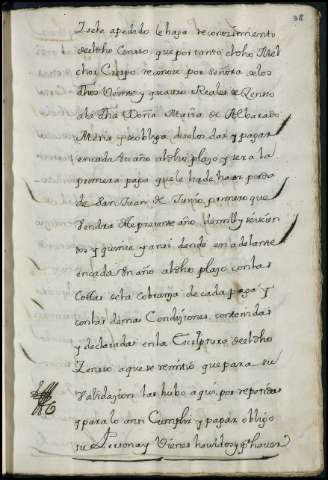 38
I sele apedado le haga reconozimiento
del dho Censso, que por tanto el dho Mel
chor Crespo reconoze por señora de los
dhos Veinte y quattro Reales de Zensso
ala dha Doña Maria de Albarado
Maria y se obliga de selos dar y pagar
en cada Un año al dho plazo y sera la
primera paga que le ha de hazer por dia
de San Juan de Junio, primero que
Vendra del presente año de mill y seiscien
tos y quinze y ansi dende en adelante
en cada Un año al dho plazo con las
Costas de la cobranza de cada paga y
con las demas Condiziones contenidas
y declaradas en la Escriptura del dho
Zensso a que se remitio que para su
Validazion las hubo aqui por repetidas
y para lo ansi Cumplir y pagar obligo
su Persona y Vienes havidos y por haver